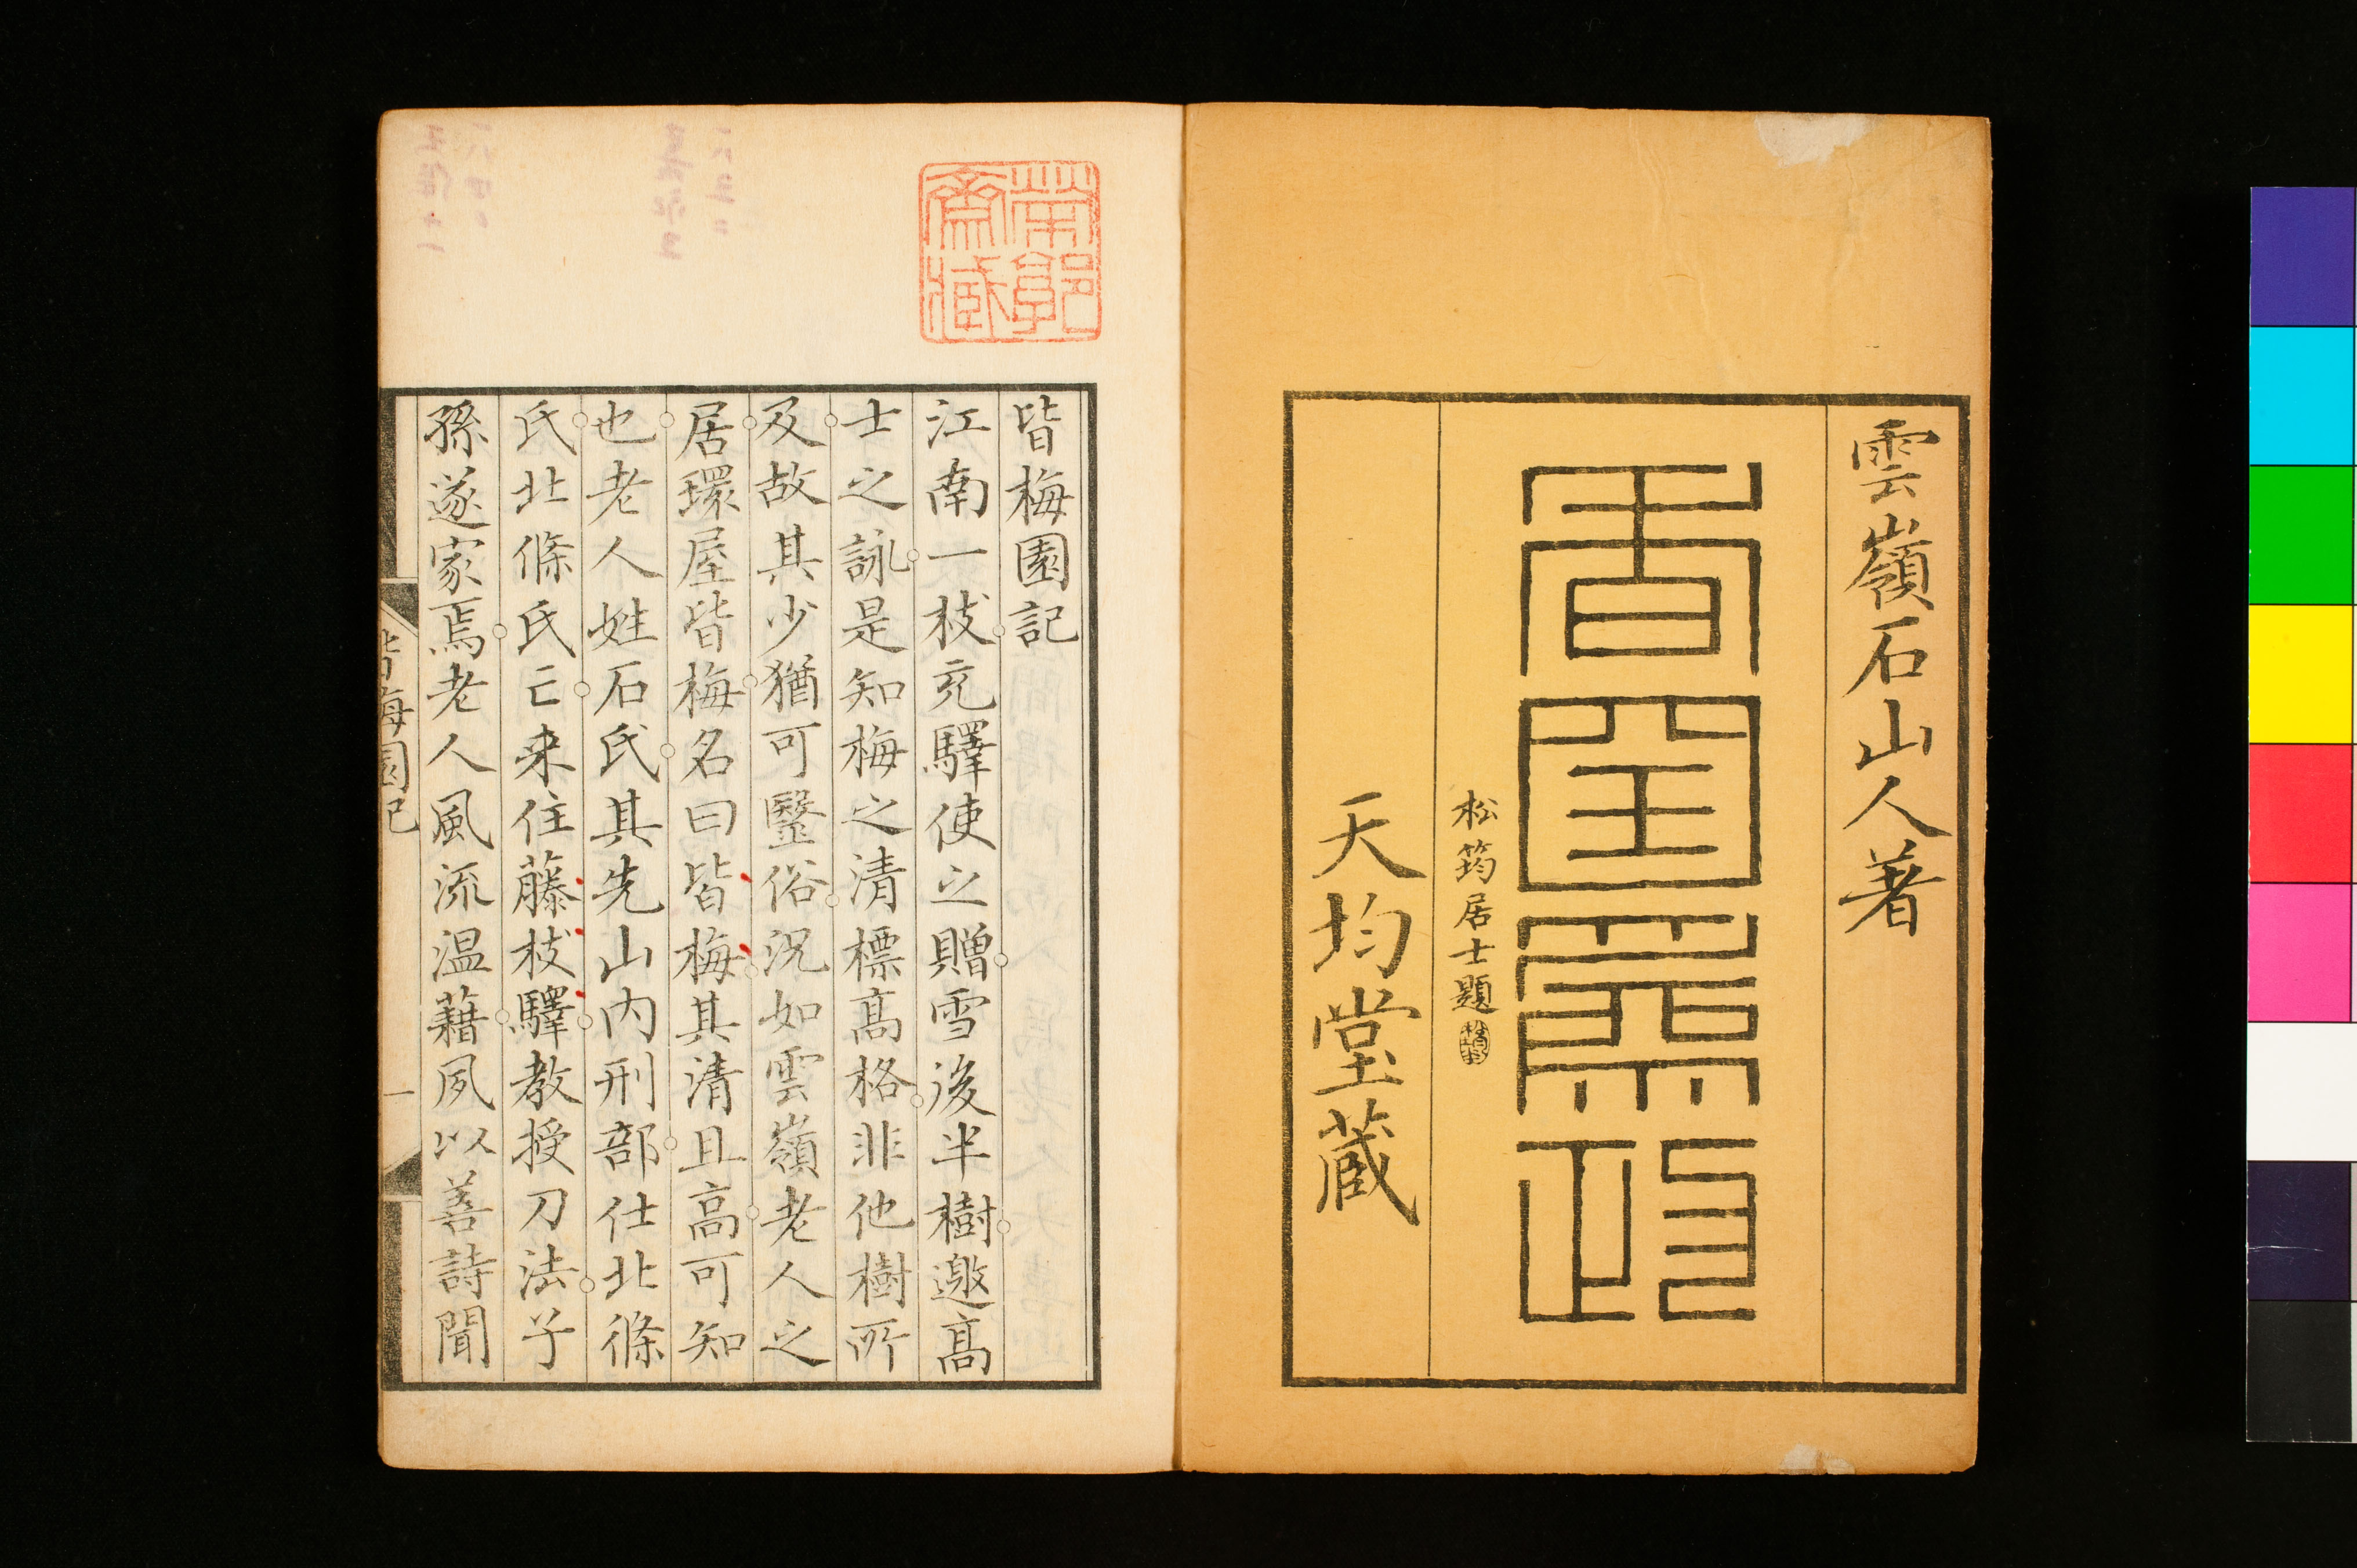 雲嶺石山人著
松筠居士題
天均堂蔵
帶郭齋臧
皆梅園記
江南一枝充驛使之贈雪後半樹邀高
士之詠是知梅之清標高格非他樹所
及故其少猶可毉俗況如雲嶺老人之
居環屋皆梅名曰皆梅其清且高可知
也老人姓石氏其先山内刑部仕北條
氏北條氏亡来住藤枝驛教授刀法子
孫遂家焉老人風流温藉夙以善詩聞
皆梅園記
一